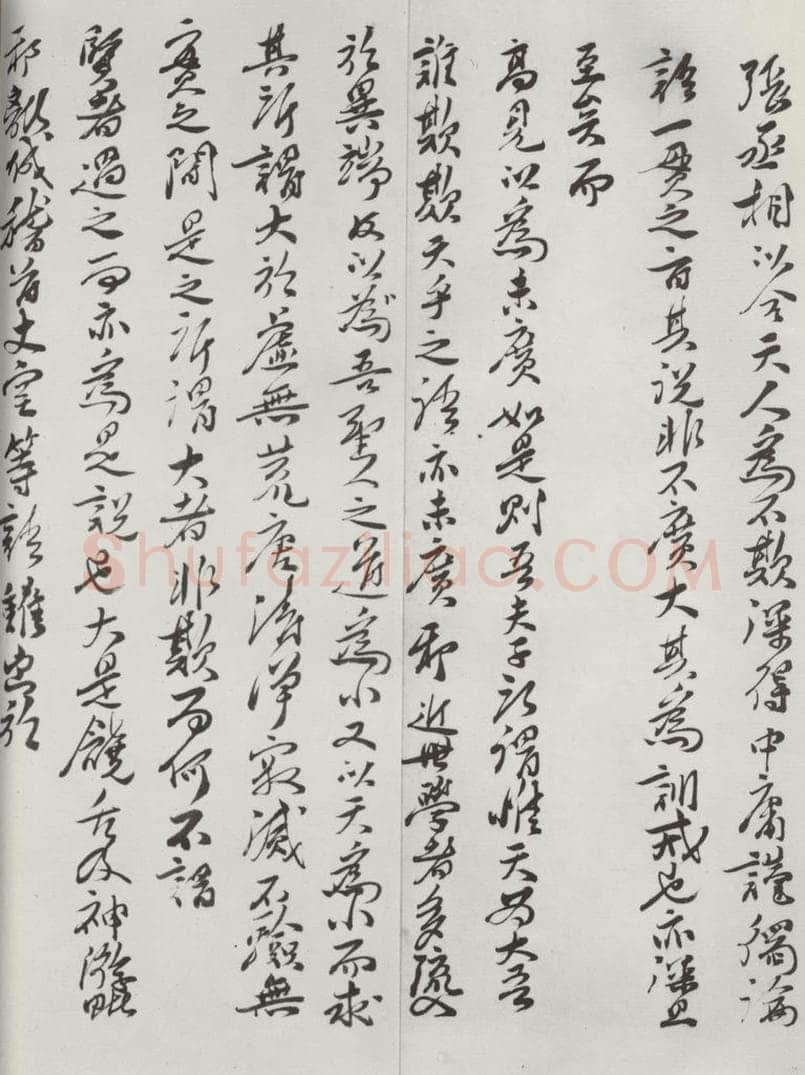 張丞相以合天人爲不欺深得中庸謹獨論
語一貫之旨其説非不廣大其爲訓戒也亦深且
至矣而
高見以爲未廣如是則吾夫子所謂惟天爲大吾
誰欺欺天乎之語亦未廣耶近世學者多流入
於異端反以爲吾聖人之道爲小又以天爲小而求
其所謂大於虚無荒唐清淨寂滅不驗無
實之間是之所謂大者非欺而何不謂
賢者過之而亦爲是説也大是饒舌及神
稽首丈室等語雖出於
Shufaziliao.COM